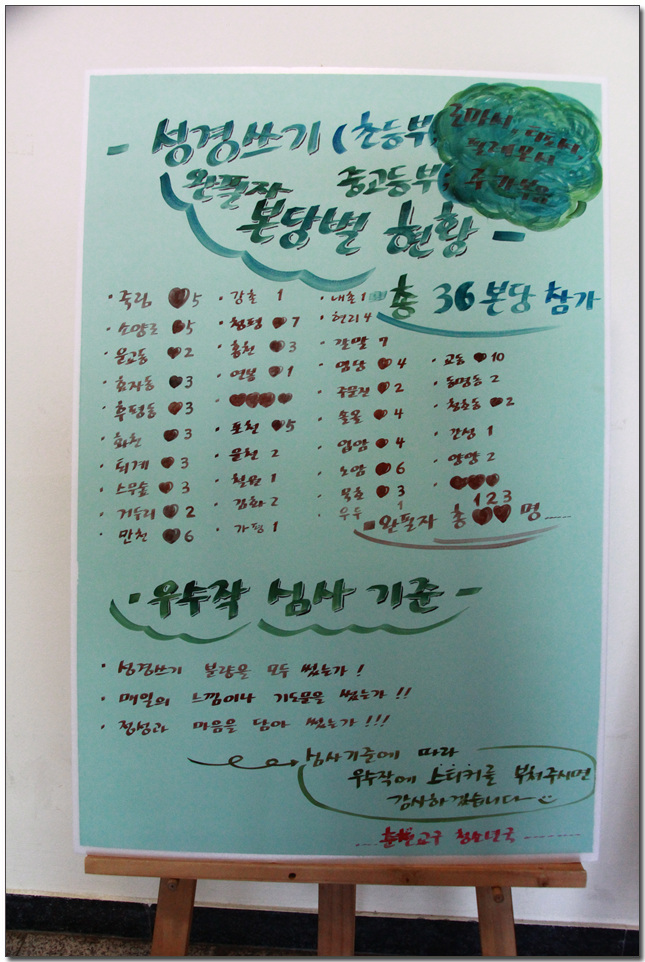 - 성경쓰기 (초등부;
완필자 중고등부; 루카복음
본당별 현황 -
총 36 본당 참가
· 죽림 5
· 소양로 5
· 운교동 2
· 효자동 3
· 후평동 3
· 화천 3
· 퇴계 3
· 스무숲 3
· 거두리 2
· 만천 6
· 강촌 1
· 청평 7
· 홍천 3
· 연봉 1
· 포천 5
· 운천 2
· 철원 1
· 김화 2
· 가평 1
· 내촌 1
· 현리 4
· 갈말 7
· 임당 4
· 주문진 2
· 솔올 4
· 입암 4
· 노암 6
· 묵호 3
· 우두 1
· 교동 10
· 동명동 2
· 청호동 2
· 간성 1
· 양양 2
완필자 총 123 명
· 우수작 심사 기준 -
· 성경쓰기 분량을 모두 썼는가!
· 매일의 느낌이나 기도문을 썼는가!!
· 정성과 마음을 담아 썼는가!!!
심사기준에 따라
우수작에 스티커를 부쳐주시면
감사하겠습니다
춘천교구 청소년국